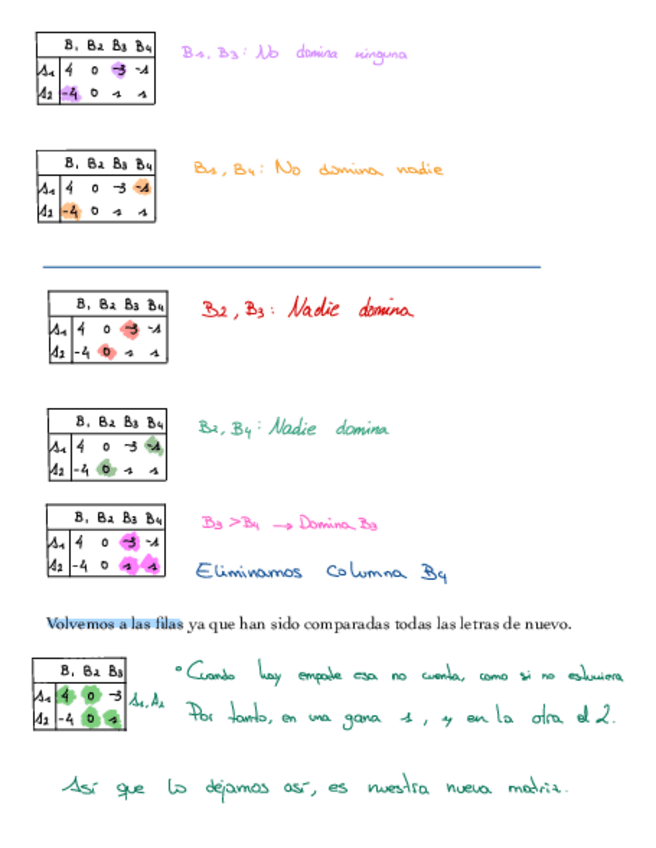 B₁ B2 B3 B4
A₁ 4 0 -3 -1
A2 -4 0 1 1
B1, B3: No domina ninguna
B₁ B2 B3 B4
A₁ 4 0 -3 -1
A2 -4 0 1 1
B1, B4: No domina nadie
B₁ B2 B3 B4
A₁ 4 0 -3 -1
A2 -4 0 1 1
B2, B3: Nadie domina
B₁ B2 B3 B4
A₁ 4 0 -3 -1
A2 -4 0 1 1
B2, B4: Nadie domina
B₁ B2 B3 B4
A₁ 4 0 -3 -1
A2 -4 0 1 1
B3 > B4 → Domina B3
Eliminamos columna B4
Volvemos a las filas ya que han sido comparadas todas las letras de nuevo.
B₁ B2 B3
A₁ 4 0 -3
A2 -4 0 1
A1, A2
° Cuando hay empate esa no cuenta, como si no estuviera
Por tanto, en una gana 1, y en la otra el 2.
Así que lo dejamos así, es nuestra nueva matriz.